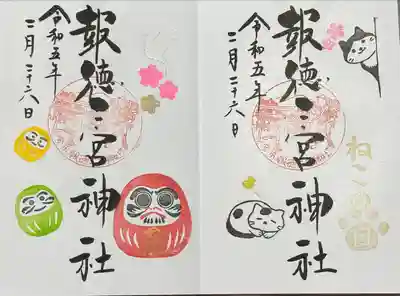 ねこの日
報徳二宮神社
令和五年
二月二十六日
報徳二宮神社
令和五年
二月二十六日